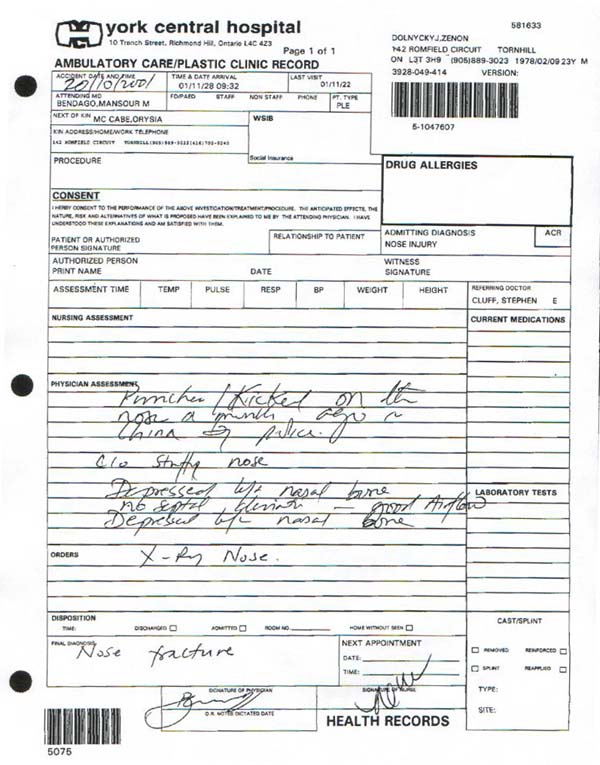 york central hospital
10 Trench Street, Richmond Hill, Ontario L4C 4Z3
Page 1 of 1
AMBULATORY CARE/PLASTIC CLINIC RECORD
581633
DOLNYCKYJ,ZENON
142 ROMFIELD CIRCUIT TORNHILL
ON L3T 3H9 (905)889-3023 1978/02/09 23Y M
3928-049-414 VERSION:
5-1047607
ACCIDENT DATE AND TIME
20/10/2001
TIME & DATE ARRIVAL
01/11/28 09:32
LAST VISIT
01/11/22
ATTENDING MD
BENDAGO,MANSOUR M
FD/PAED STAFF NON STAFF PHONE PT. TYPE
PLE
NEXT OF KIN
MC CABE,ORYSIA
WSIB
KIN ADDRESS/HOME/WORK TELEPHONE
142 ROMFIELD CIRCUIT TORNHILL(905)889-3023(416)700-0240
PROCEDURE
Social Insurance
DRUG ALLERGIES
CONSENT
I HEREBY CONSENT TO THE PERFORMANCE OF THE ABOVE INVESTIGATION/TREATMENT/PROCEDURE. THE ANTICIPATED EFFECTS, THE
NATURE, RISK AND ALTERNATIVES OF WHAT IS PROPOSED HAVE BEEN EXPLAINED TO ME BY THE ATTENDING PHYSICIAN. I HAVE
UNDERSTOOD THESE EXPLANATIONS AND AM SATISFIED WITH THEM.
PATIENT OR AUTHORIZED
PERSON SIGNATURE
RELATIONSHIP TO PATIENT
ADMITTING DIAGNOSIS
NOSE INJURY
ACR
AUTHORIZED PERSON
PRINT NAME
DATE
WITNESS
SIGNATURE
ASSESSMENT TIME TEMP PULSE RESP BP WEIGHT HEIGHT
REFERRING DOCTOR
CLUFF, STEPHEN E
NURSING ASSESSMENT
CURRENT MEDICATIONS
PHYSICIAN ASSESSMENT
Punched / Kicked on the
nose a month ago in
China by police.
c/o stuffy nose
Depressed nasal bone
no septal good Airflow
Depressed nasal bone
LABORATORY TESTS
ORDERS
X-Ray Nose.
DISPOSITION
TIME: DISCHARGED ADMITTED ROOM NO. HOME WITHOUT SEEN
CAST/SPLINT
REMOVED REINFORCED
SPLINT REAPPLIED
TYPE:
SITE:
FINAL DIAGNOSIS
Nose fracture
NEXT APPOINTMENT
DATE:
TIME:
SIGNATURE OF PHYSICIAN
SIGNATURE OF NURSE
D.R. NOTES DICTATED DATE
HEALTH RECORDS
5075